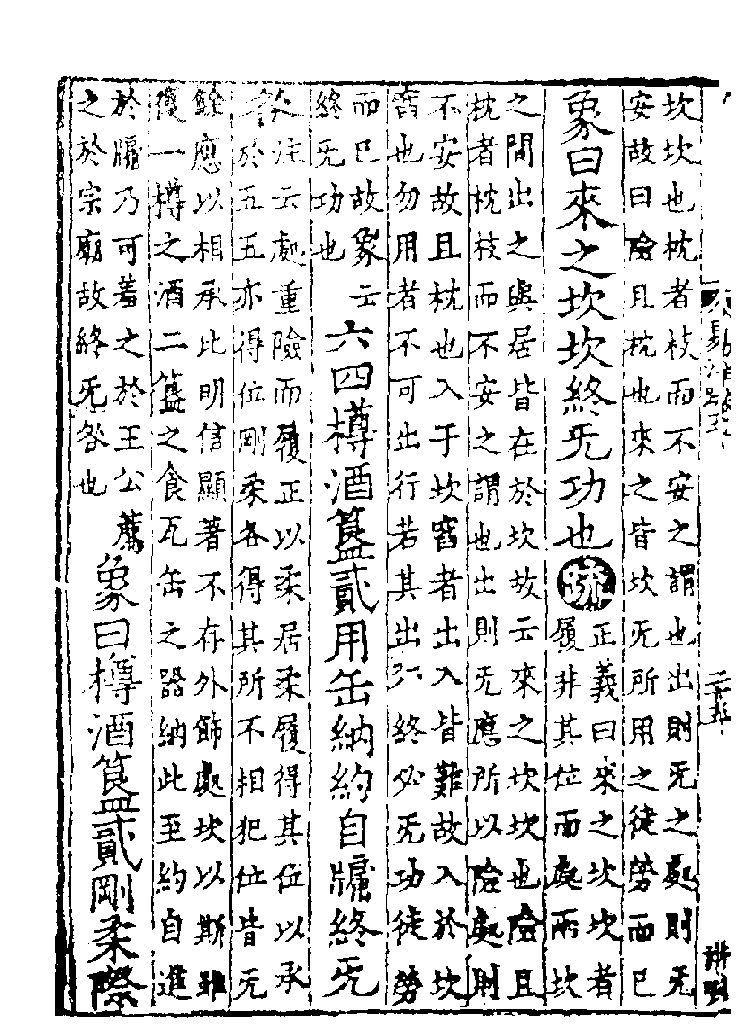 坎坎也枕者枝而不安之謂也出則无之處則无
安故曰險且枕也來之皆坎无所用之徒勞而已
象曰來之坎坎終无功也疏正義曰來之坎坎者
履非其位而處兩坎
之間出之與居皆在於坎故云來之坎坎也險且
枕者枕枝而不安之謂也出則无應所以險處則
不安故且枕也入于坎窞者出入皆難故入於坎
窞也勿用者不可出行若其出行終必无功徒勞
而已故象云
終无功也
六四樽酒簋貳用缶納約自牖終无
咎注云處重險而履正以柔居柔履得其位以承
於五五亦得位剛柔各得其所不相犯位皆无
餘應以相承比明信顯著不存外飾處坎以斯雖
復一樽之酒二簋之食瓦缶之器納此至約自進
於牖乃可羞之於王公薦
之於宗廟故終无咎也
象曰樽酒簋貳剛柔際